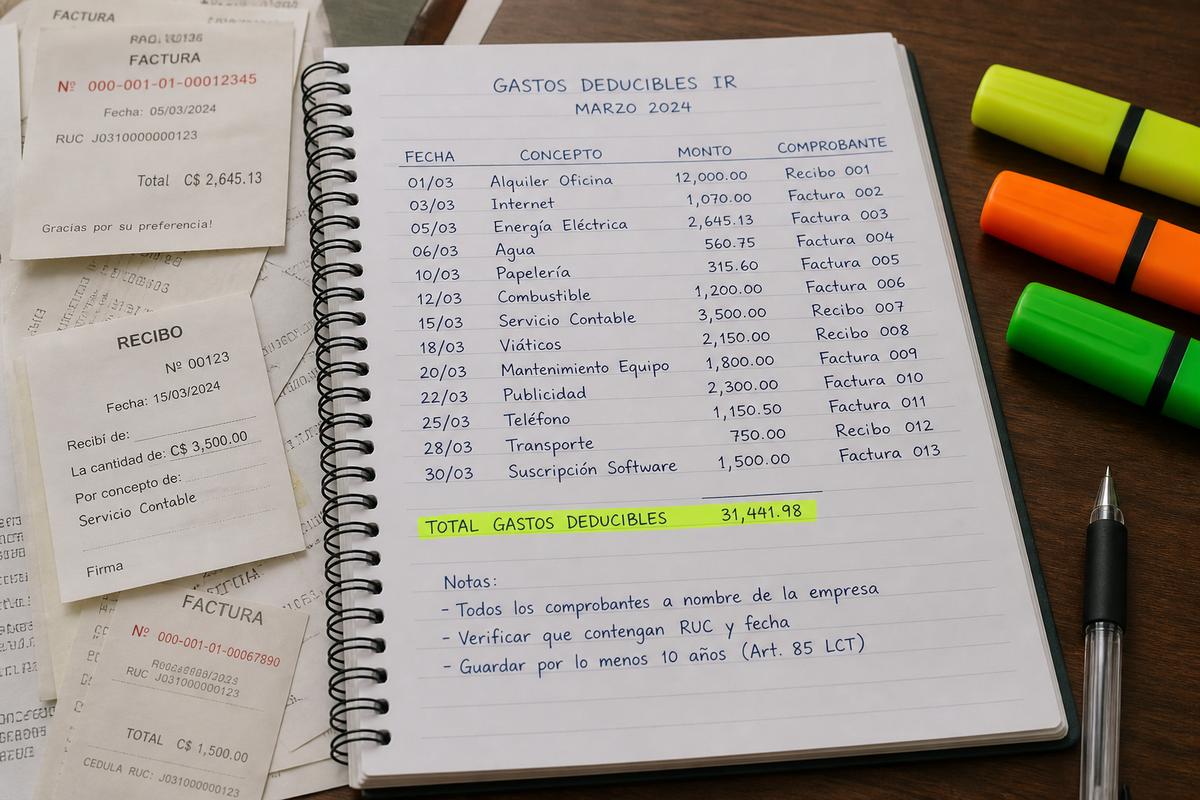 FACTURA
FACTURA
Nº 000-001-01-00012345
Fecha: 05/03/2024
RUC J0310000000123
Total C$ 2,645.13
Gracias por su preferencia!
RECIBO
Nº 00123
Fecha: 15/03/2024
Recibí de:
La cantidad de: C$ 3,500.00
Por concepto de:
Servicio Contable
Firma
FACTURA
Nº 000-001-01-00067890
RUC J031000000123
TOTAL C$ 1,500.00
CEDULA RUC: J031000000123
GASTOS DEDUCIBLES IR
MARZO 2024
FECHA CONCEPTO MONTO COMPROBANTE
01/03 Alquiler Oficina 12,000.00 Recibo 001
03/03 Internet 1,070.00 Factura 002
05/03 Energía Eléctrica 2,645.13 Factura 003
06/03 Agua 560.75 Factura 004
10/03 Papelería 315.60 Factura 005
12/03 Combustible 1,200.00 Factura 006
15/03 Servicio Contable 3,500.00 Recibo 007
18/03 Viáticos 2,150.00 Recibo 008
20/03 Mantenimiento Equipo 1,800.00 Factura 009
22/03 Publicidad 2,300.00 Factura 010
25/03 Teléfono 1,150.50 Factura 011
28/03 Transporte 750.00 Recibo 012
30/03 Suscripción Software 1,500.00 Factura 013
TOTAL GASTOS DEDUCIBLES 31,441.98
Notas:
- Todos los comprobantes a nombre de la empresa
- Verificar que contengan RUC y fecha
- Guardar por lo menos 10 años (Art. 85 LCT)